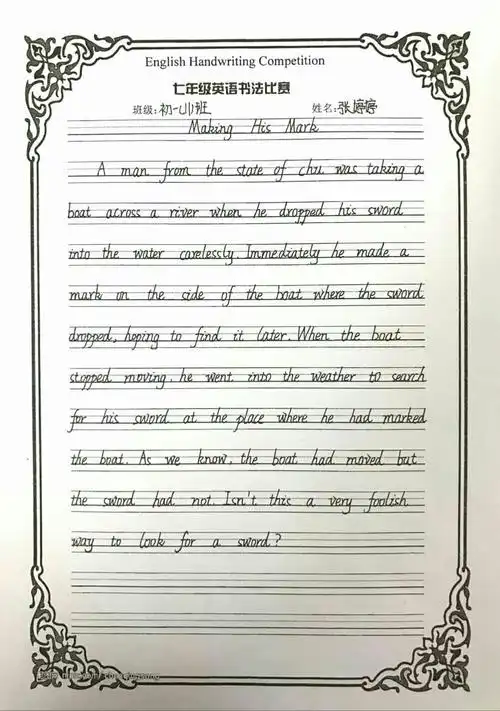 English Handwriting Competition
七年级英语书法比赛
班级:初一(1)班 姓名:张婷婷
Making His Mark
A man from the state of chu was taking a
boat across a river when he dropped his sword
into the water carelessly. Immediately he made a
mark on the side of the boat where the sword
dropped, hoping to find it later. When the boat
stopped moving, he went into the weather to search
for his sword at the place where he had marked
the boat. As we know, the boat had moved but
the sword had not. Isn't this a very foolish
way to look for a sword?